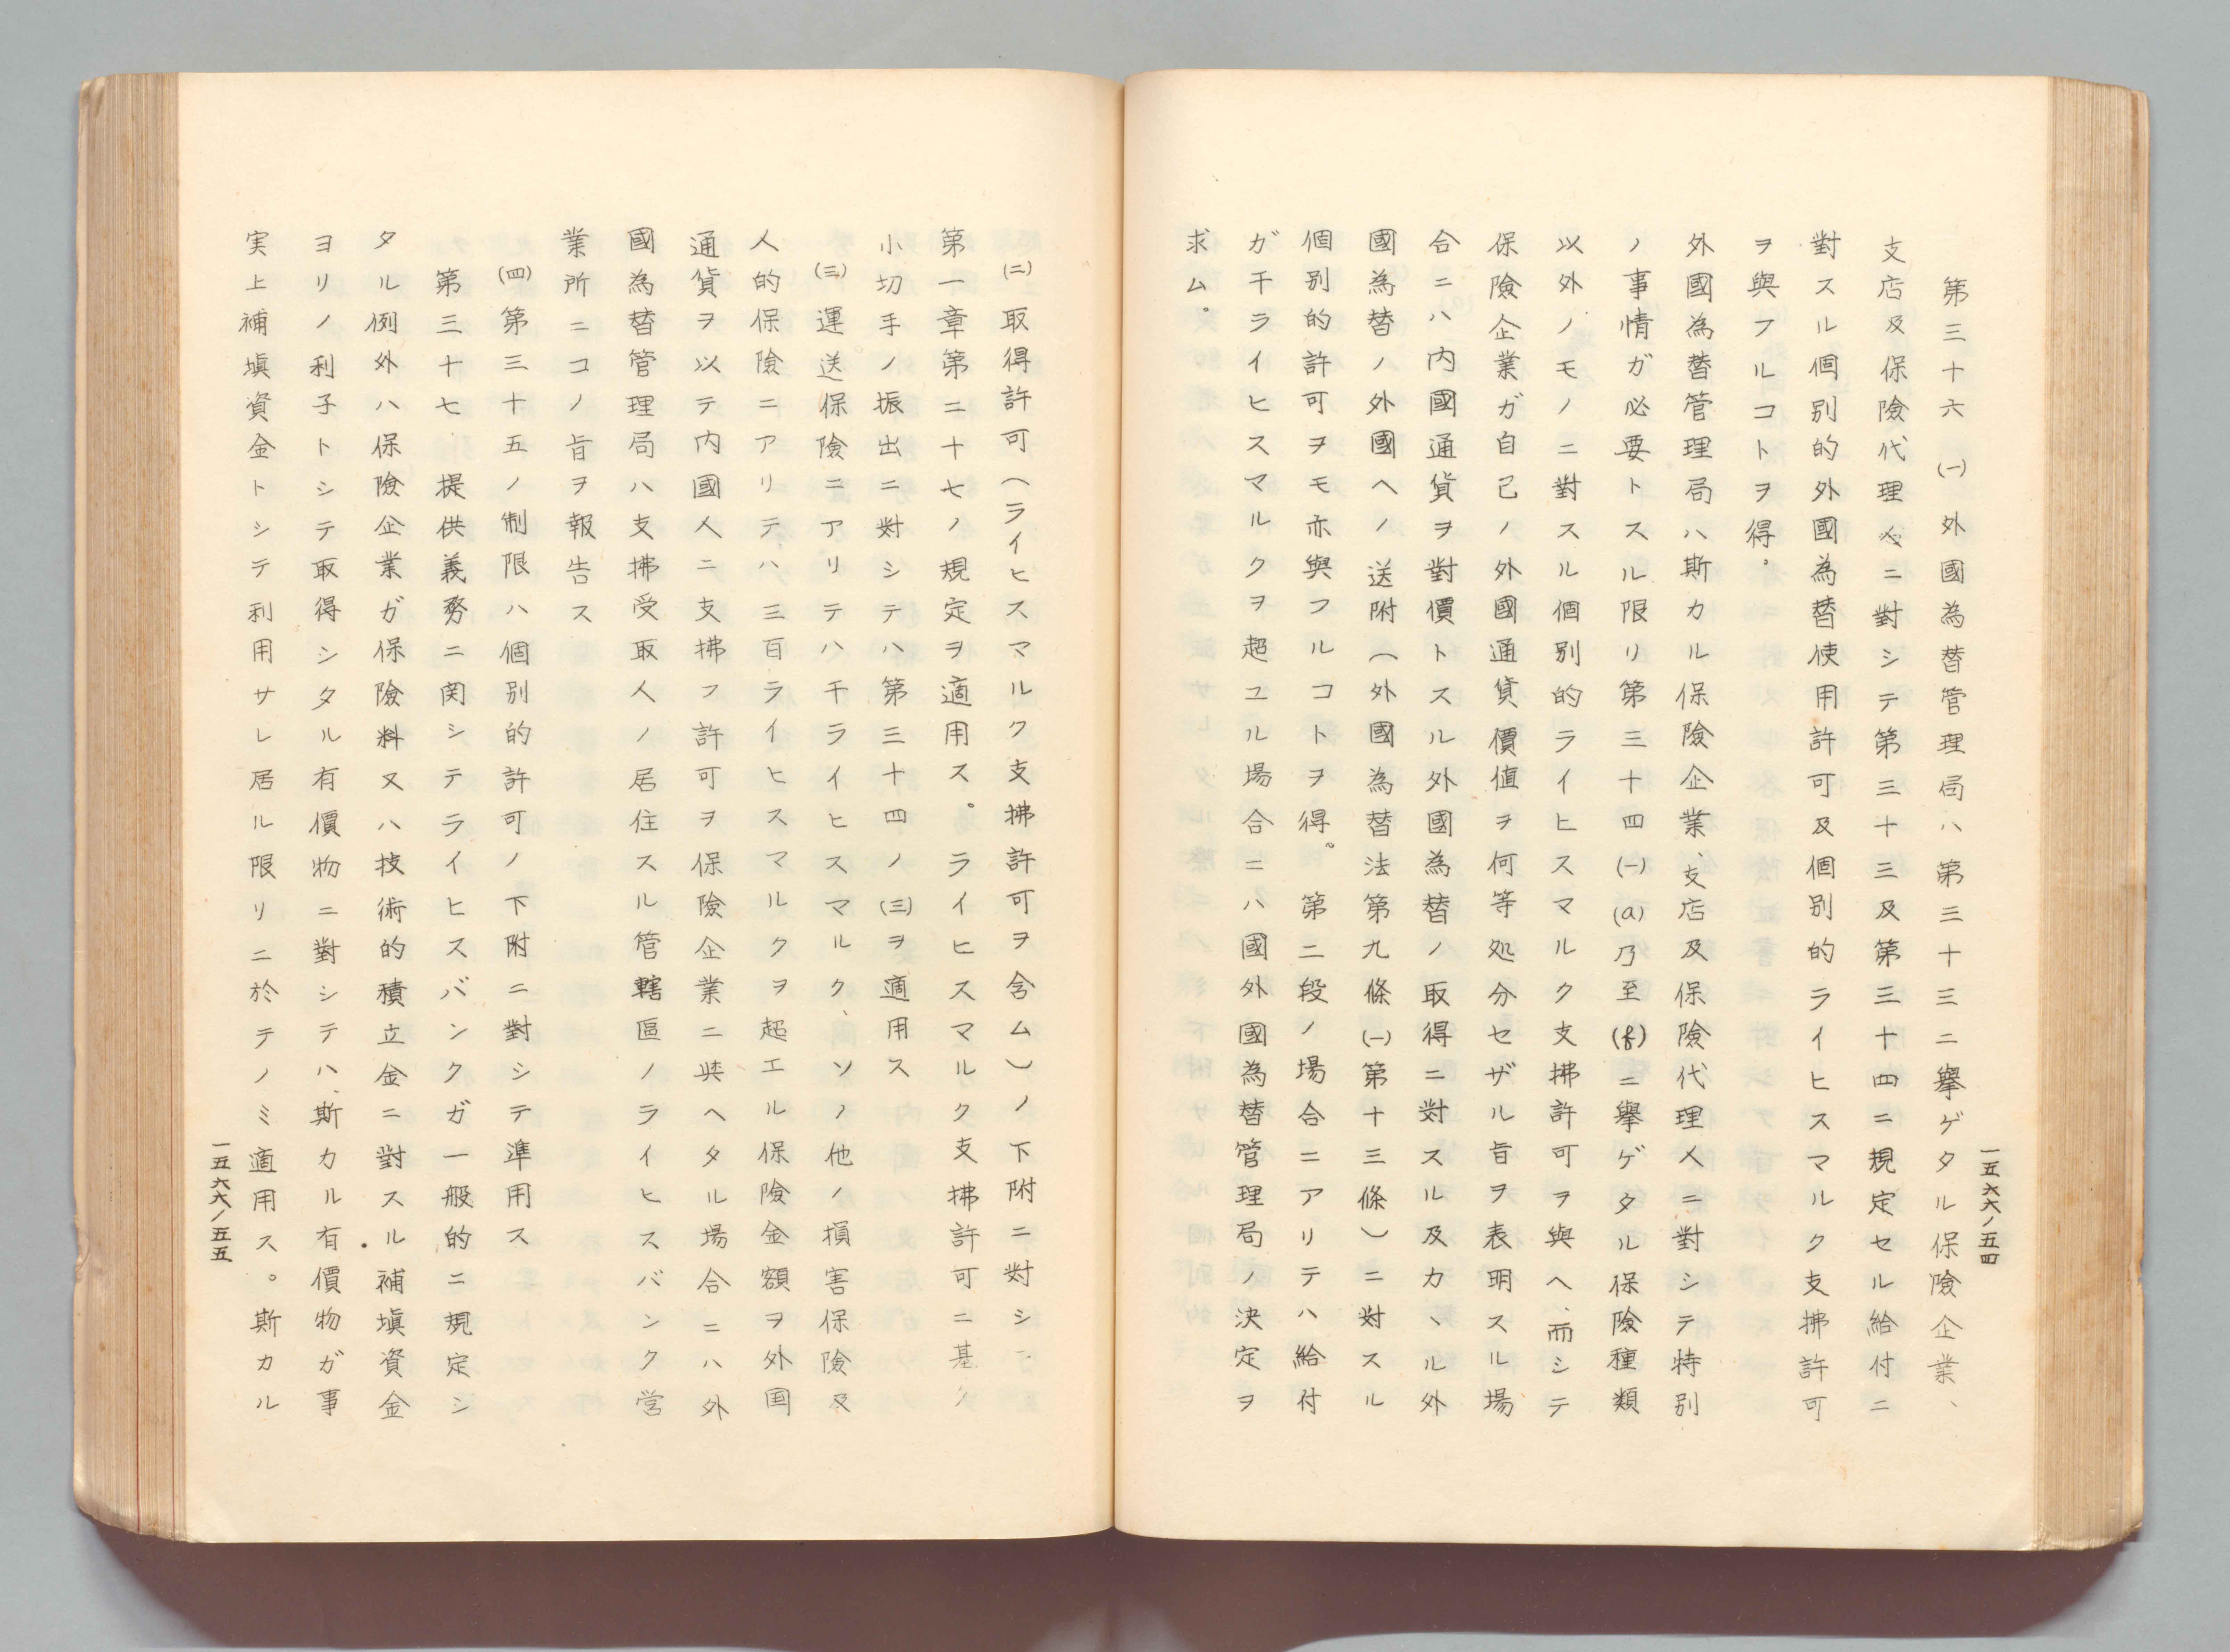 一五六六ノ五四
第三十六 (一)外國為替管理局ハ第三十三ニ擧ゲタル保險企業、
支店及保險代理人ニ對シテ第三十三及第三十四ニ規定セル給付ニ
對スル個別的外國為替使用許可及個別的ライヒスマルク支拂許可
ヲ與フルコトヲ得。
外國為替管理局ハ斯カル保險企業、支店及保險代理人ニ對シテ特別
ノ事情ガ必要トスル限リ第三十四(一)(a)乃至(f)ニ擧ゲタル保險種類
以外ノモノニ對スル個別的ライヒスマルク支拂許可ヲ與ヘ、而シテ
保險企業ガ自己ノ外國通貨價値ヲ何等処分セザル旨ヲ表明スル場
合ニハ内國通貨ヲ對價トスル外國為替ノ取得ニ対スル及カヽル外
國為替ノ外國ヘノ送附(外國為替法第九條(一)第十三條)ニ対スル
個別的許可ヲモ亦與フルコトヲ得。 第二段ノ場合ニアリテハ給付
ガ千ライヒスマルクヲ超ユル場合ニハ國外國為替管理局ノ決定ヲ
求ム。
(二)取得許可(ライヒスマルク支拂許可ヲ含ム)ノ下附ニ対シテ
第一章第二十七ノ規定ヲ適用ス。 ライヒスマルク支拂許可ニ基ク
小切手ノ振出ニ対シテハ第三十四ノ(三)ヲ適用ス
(三)運送保險ニアリテハ千ライヒスマルク、ソノ他ノ損害保險及
人的保險ニアリテハ三百ライヒスマルクヲ超エル保險金額ヲ外国
通貨ヲ以テ内國人ニ支拂フ許可ヲ保險企業ニ與ヘタル場合ニハ外
國為替管理局ハ支拂受取人ノ居住スル管轄區ノライヒスバンク営
業所ニコノ旨ヲ報告ス
(四)第三十五ノ制限ハ個別的許可ノ下附ニ對シテ準用ス
第三十七 提供義務ニ関シテライヒスバンクガ一般的ニ規定シ
タル例外ハ保險企業ガ保險料又ハ技術的積立金ニ對スル補塡資金
ヨリノ利子トシテ取得シタル有價物ニ對シテハ、斯カル有價物ガ事
実上補塡資金トシテ利用サレ居ル限リニ於テノミ適用ス。斯カル
一五六六ノ五五